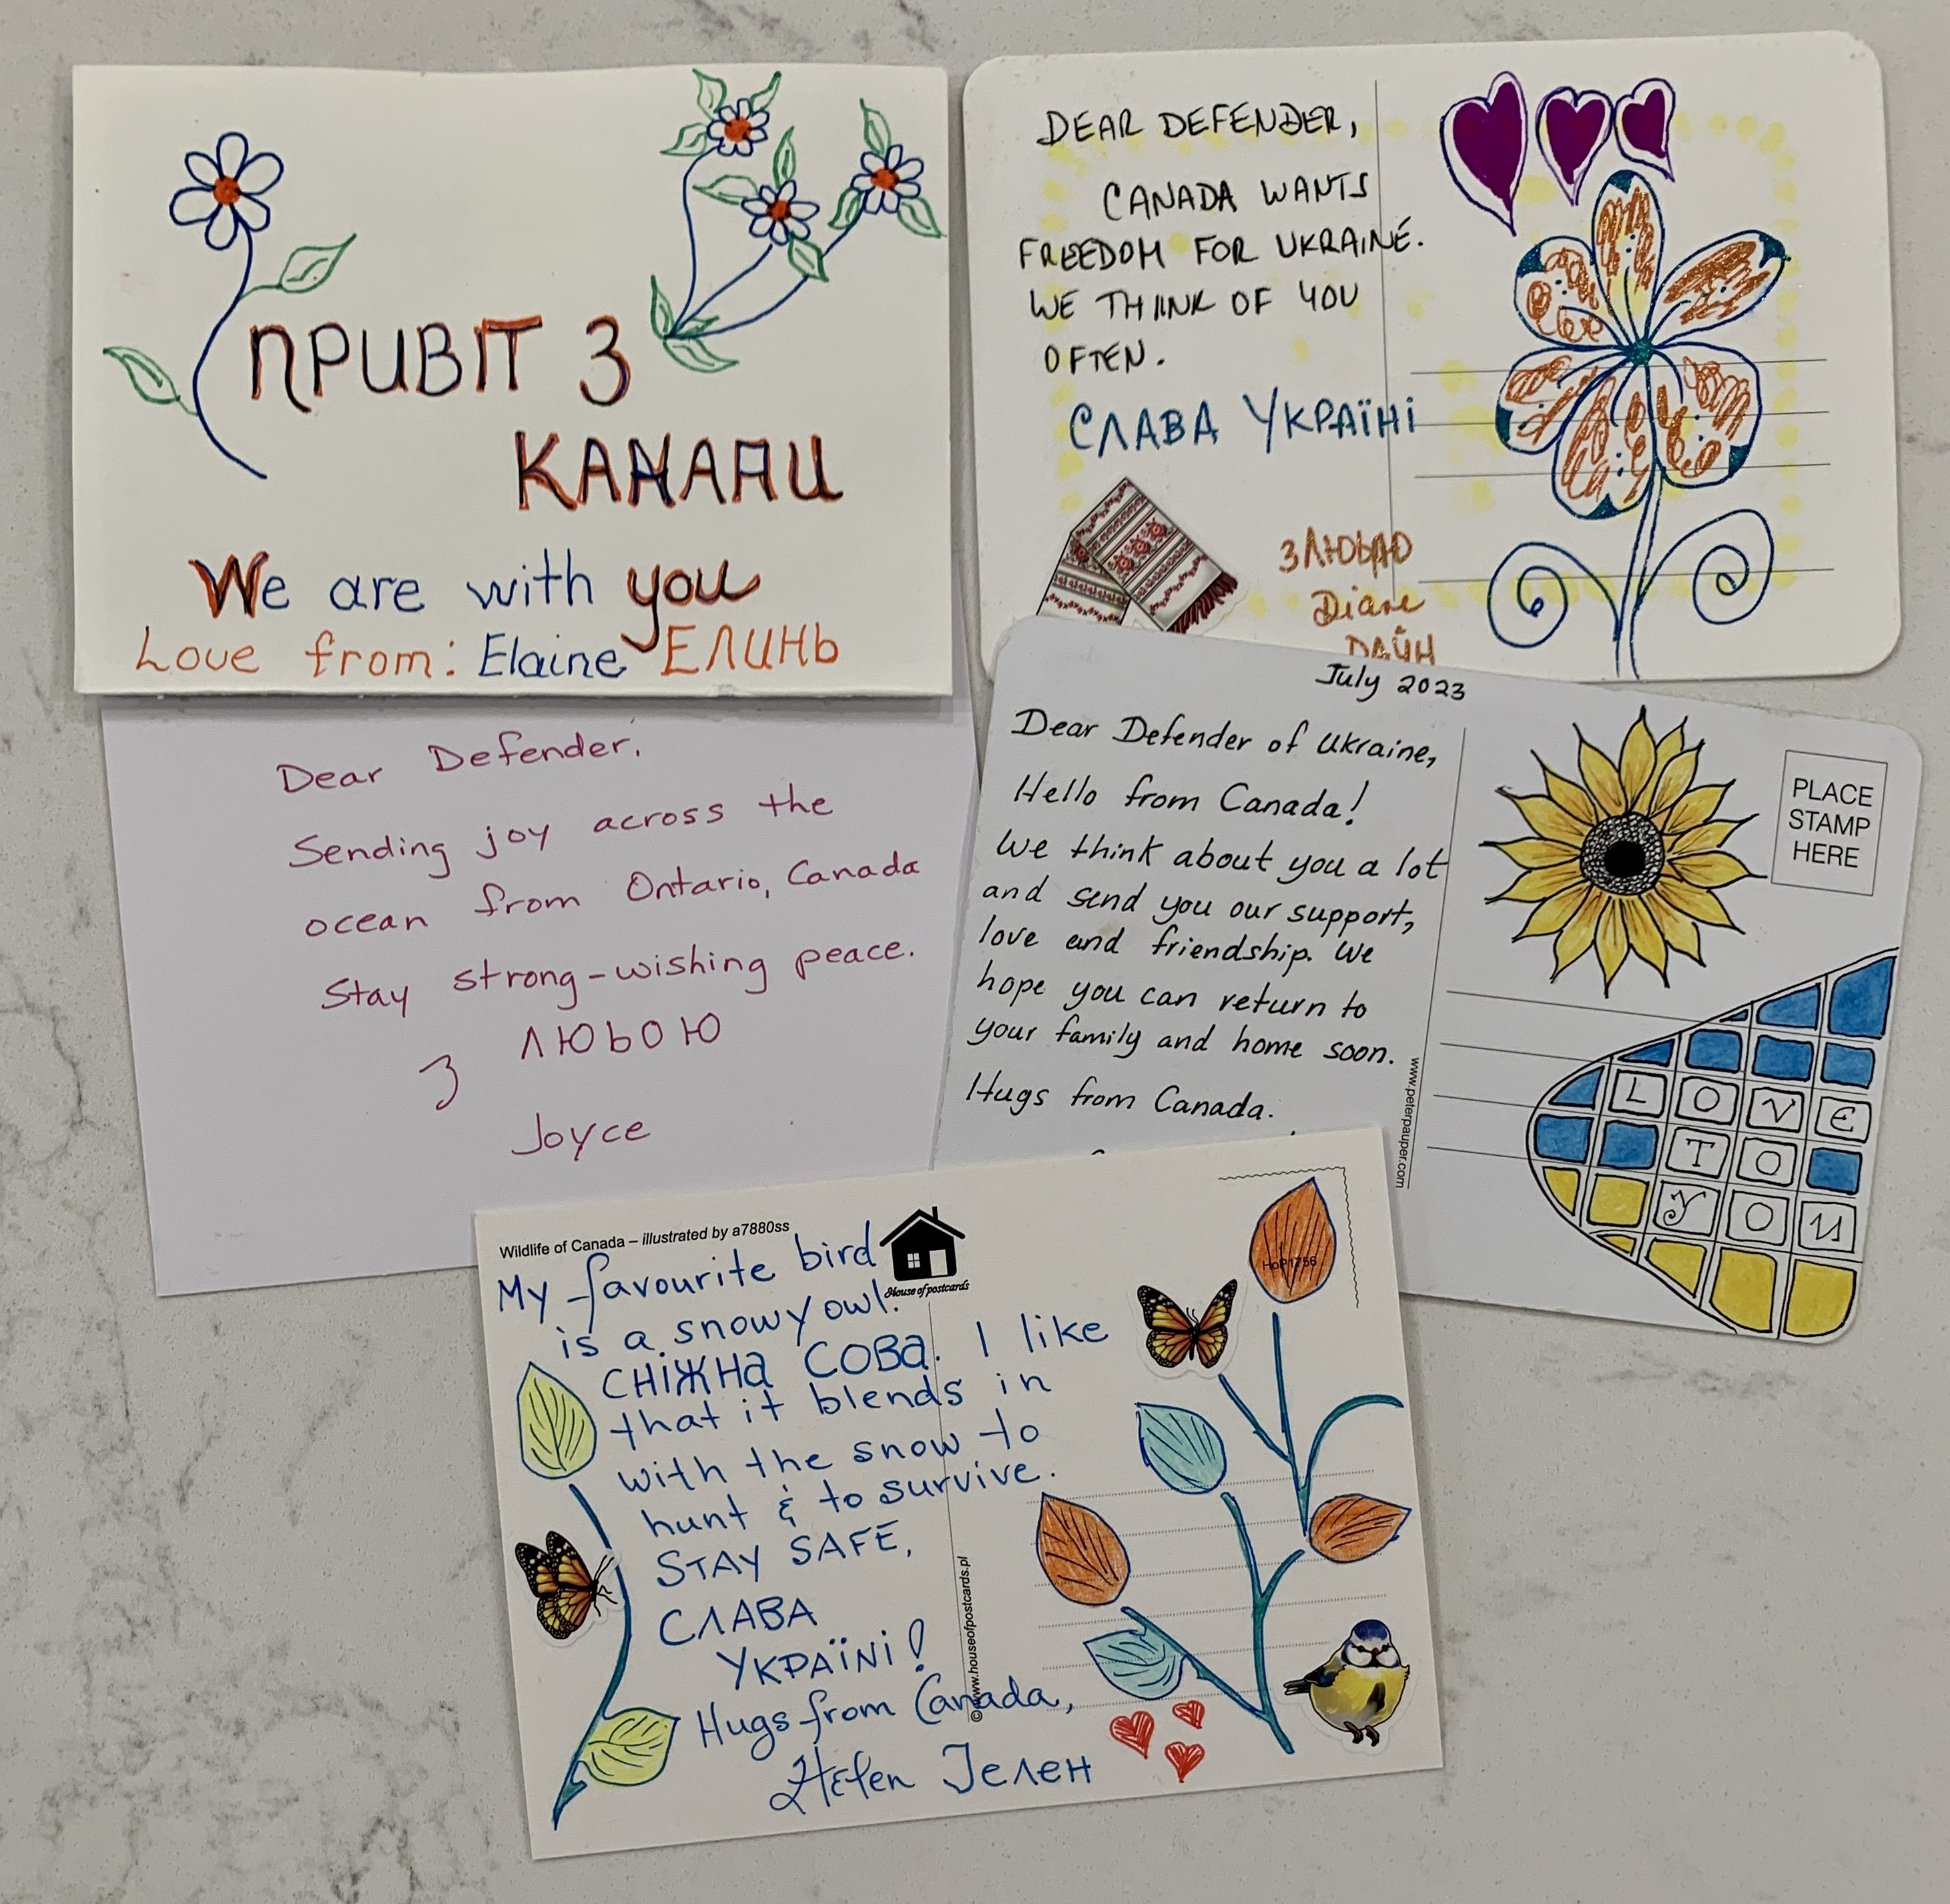 ПРИВІТ З
КАНАДИ
We are with you
Love from: Elaine ЕЛИНЬ
DEAR DEFENDER,
CANADA WANTS
FREEDOM FOR UKRAINE.
WE THINK OF YOU
OFTEN.
СЛАВА УКРАЇНІ
Diane
ДАЙН
Dear Defender,
Sending joy across the
ocean from Ontario, Canada
Stay strong-wishing peace.
З ЛЮЬОЮ
Joyce
July 2023
Dear Defender of Ukraine,
Hello from Canada!
We think about you a lot
and send you our support,
love and friendship. We
hope you can return to
your family and home soon.
Hugs from Canada.
www.peterpauper.com
PLACE
STAMP
HERE
LOVE
TO
YOU
Wildlife of Canada – illustrated by a7880ss
House of postcards
HoP1756
My favourite bird
is a snowy owl.
СНІЖНА СОВА. I like
that it blends in
with the snow to
hunt & to survive.
STAY SAFE,
СЛАВА
УКРАЇНІ!
Hugs from Canada,
Helen Гелен
© www.houseofpostcards.pl